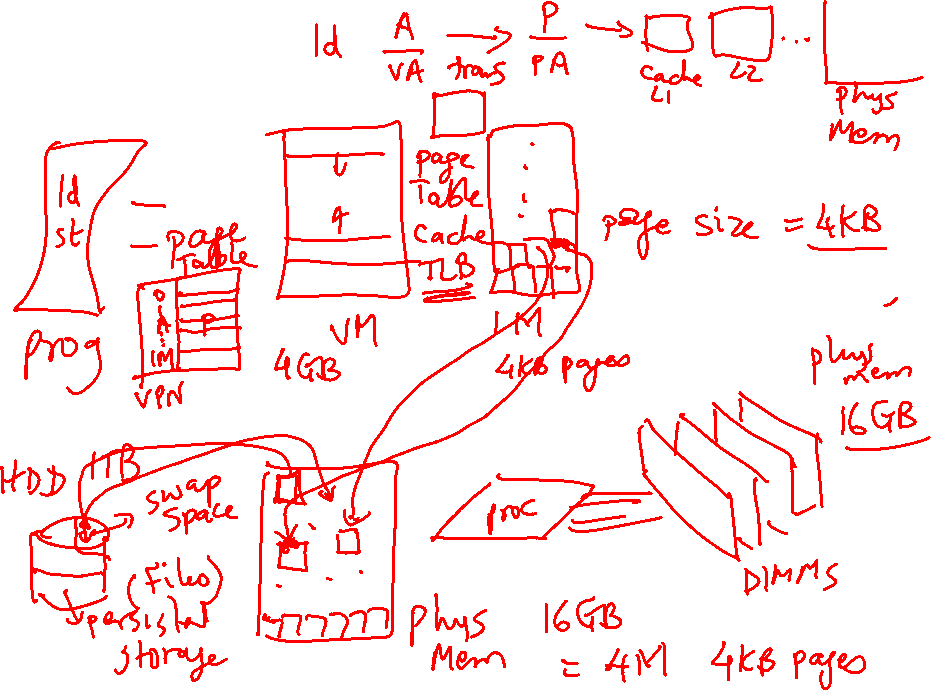 ld A → P →
VA trans PA
cache L1
L2
...
phys Mem
ld
st
prog
page Table
0
A
1M
P
VPN
VM
4GB
page Table
Cache
TLB
VM
4KB pages
page size = 4KB
phys mem
16GB
HDD
1TB
swap space
(Files)
persistent storage
proc
DIMMS
phys Mem
16GB
= 4M 4KB pages